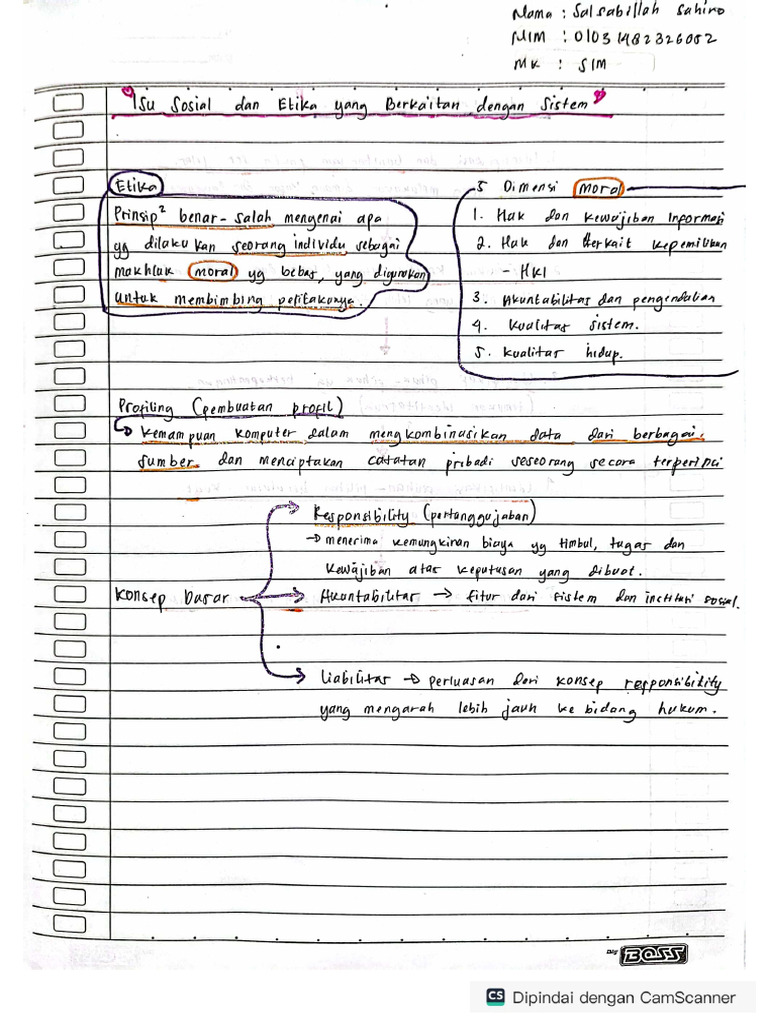 Nama : Salsabillah Sahiro
NIM : 01031482326002
MK : SIM
Isu Sosial dan Etika yang Berkaitan dengan Sistem
Etika
Prinsip² benar-salah mengenai apa
yg dilakukan seorang individu sebagai
makhluk moral yg bebas, yang digunakan
untuk membimbing perilakunya.
5 Dimensi moral
1. Hak dan kewajiban Informasi
2. Hak dan terkait kepemilikan
HKI
3. Akuntabilitas dan pengendalian
4. Kualitas sistem.
5. Kualitas hidup.
Profiling (pembuatan profil)
↳ Kemampuan komputer dalam mengkombinasikan data dari berbagai
sumber dan menciptakan catatan pribadi seseorang secara terperinci
Konsep Dasar
Responsibility (pertanggujaban)
→ menerima kemungkinan biaya yg timbul, tugas dan
kewajiban atas keputusan yang dibuat.
Akuntabilitas → fitur dari sistem dan institusi sosial.
Liabilitas → perluasan dari konsep responsibility
yang mengarah lebih jauh ke bidang hukum.
BOSS
CS Dipindai dengan CamScanner